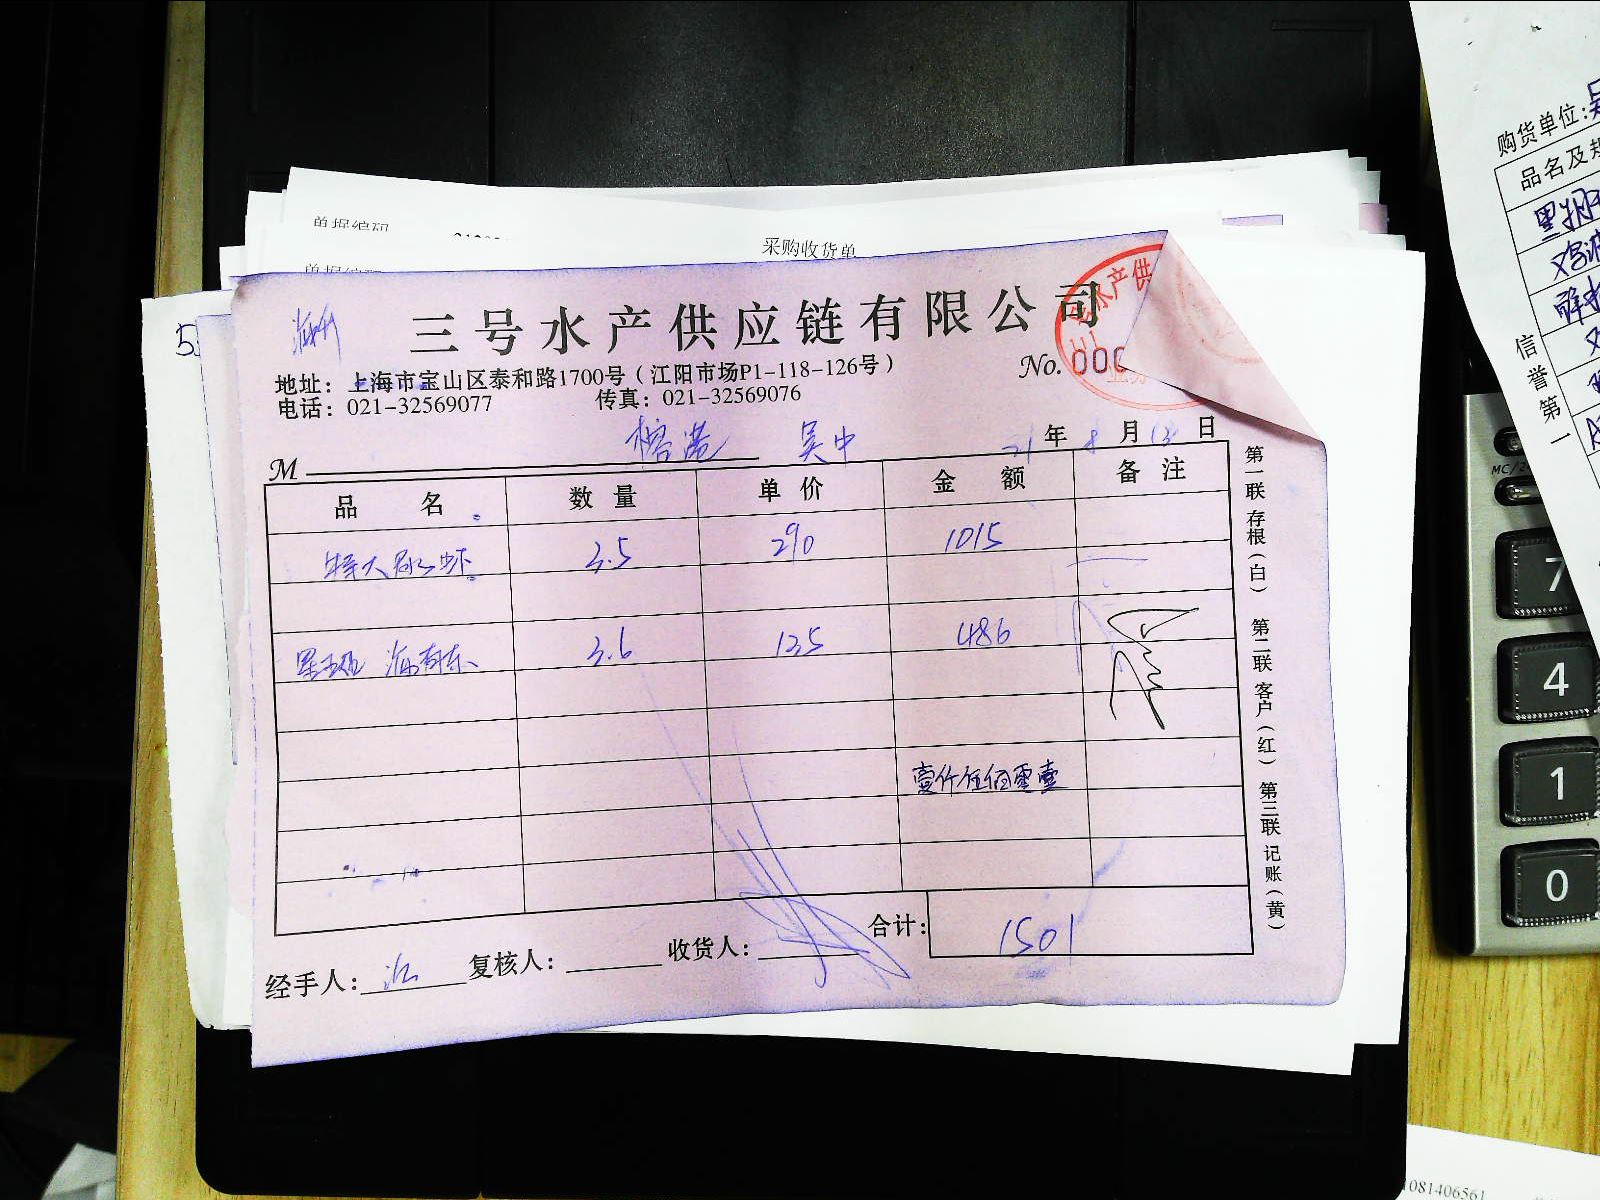 单据编码
采购收货单
单据编码
三号水产供应链有限公司
No. 000
地址：上海市宝山区泰和路1700号（江阳市场P1-118-126号）
电话：021-32569077 传真：021-32569076
M 榕港 吴中 21年8月13日
品名 数量 单价 金额 备注
特大 虾 3.5 290 1015
3.6 135 486
壹仟伍佰零壹
合计： 1501
经手人： 复核人： 收货人：
第一联 存根（白） 第二联 客户（红） 第三联 记账（黄）
三号水产供
购货单位：吴
品名及规
信誉第一
MC/
7
4
1
0
1081406561